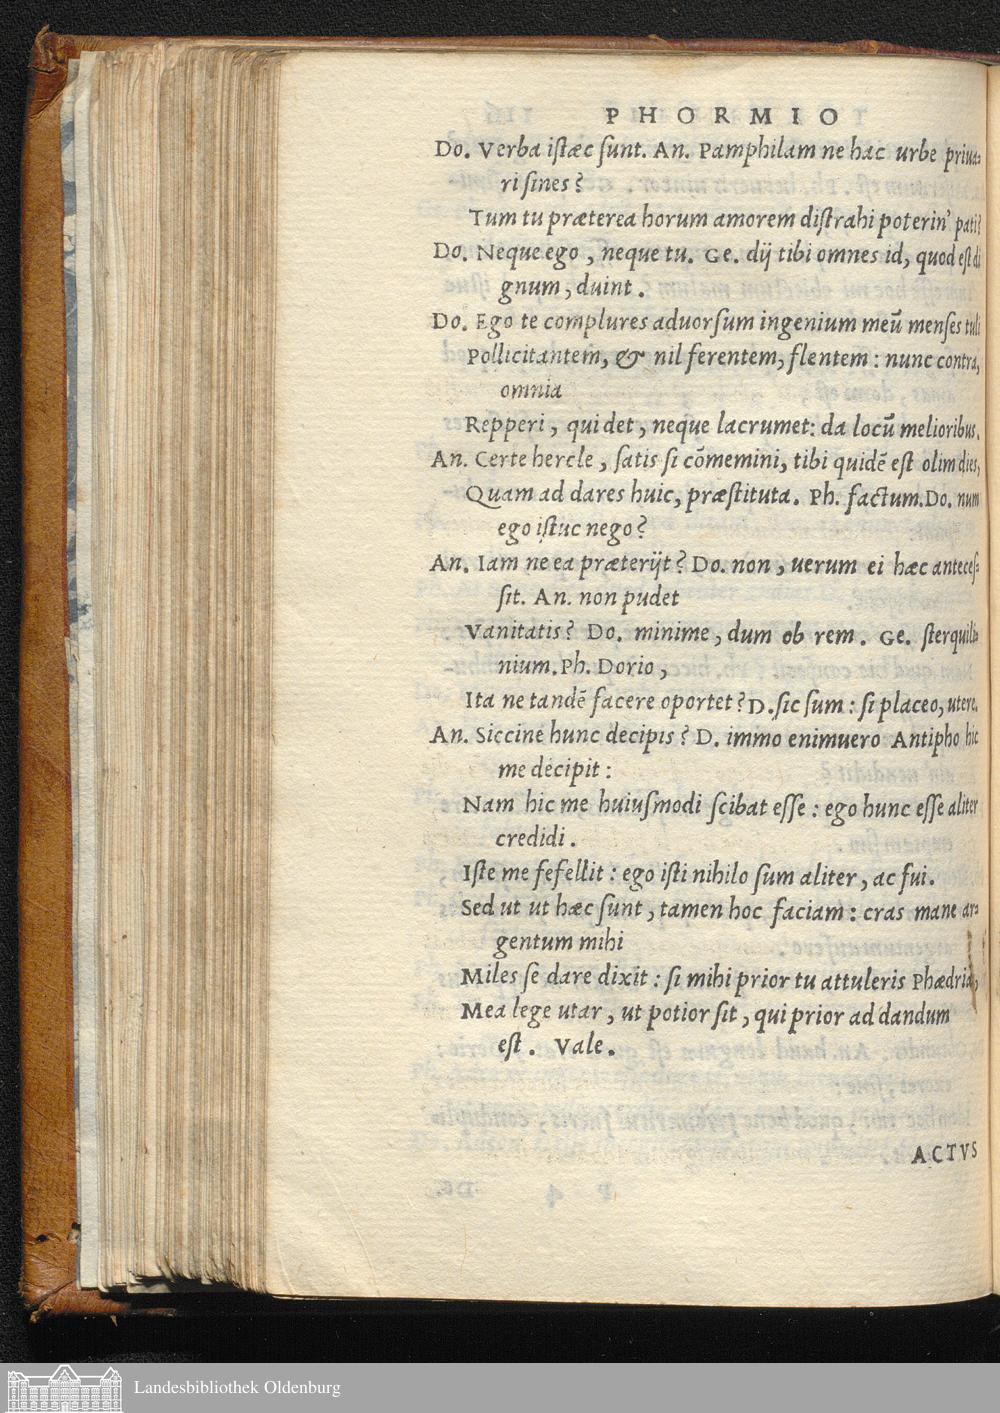 PHORMIO
Do. Verba iſtæc ſunt. An. Pamphilam ne hac urbe priua-
ri ſines?
Tum tu præterea horum amorem diſtrahi poterin' pati?
Do. Neque ego, neque tu. Ge. dij tibi omnes id, quod eſt di
gnum, duint.
Do. Ego te complures aduorſum ingenium meū menſes tuli
Pollicitantem, & nil ferentem, flentem: nunc contra,
omnia
Repperi, qui det, neque lacrumet: da locū melioribus.
An. Certe hercle, ſatis ſi cōmemini, tibi quidē eſt olim dies,
Quam ad dares huic, præſtituta. Ph. factum. Do. num
ego iſtuc nego?
An. Iam ne ea præterijt? Do. non, uerum ei hæc anteceſ-
ſit. An. non pudet
Vanitatis? Do. minime, dum ob rem. Ge. ſterquili-
nium. Ph. Dorio,
Ita ne tandē facere oportet? D. ſic ſum: ſi placeo, utere.
An. Siccine hunc decipis? D. immo enimuero Antipho hic
me decipit:
Nam hic me huiuſmodi ſcibat eſſe: ego hunc eſſe aliter
credidi.
Iſte me fefellit: ego iſti nihilo ſum aliter, ac fui.
Sed ut ut hæc ſunt, tamen hoc faciam: cras mane ar-
gentum mihi
Miles ſe dare dixit: ſi mihi prior tu attuleris Phædria,
Mea lege utar, ut potior ſit, qui prior ad dandum
eſt. Vale.
ACTVS
Landesbibliothek Oldenburg